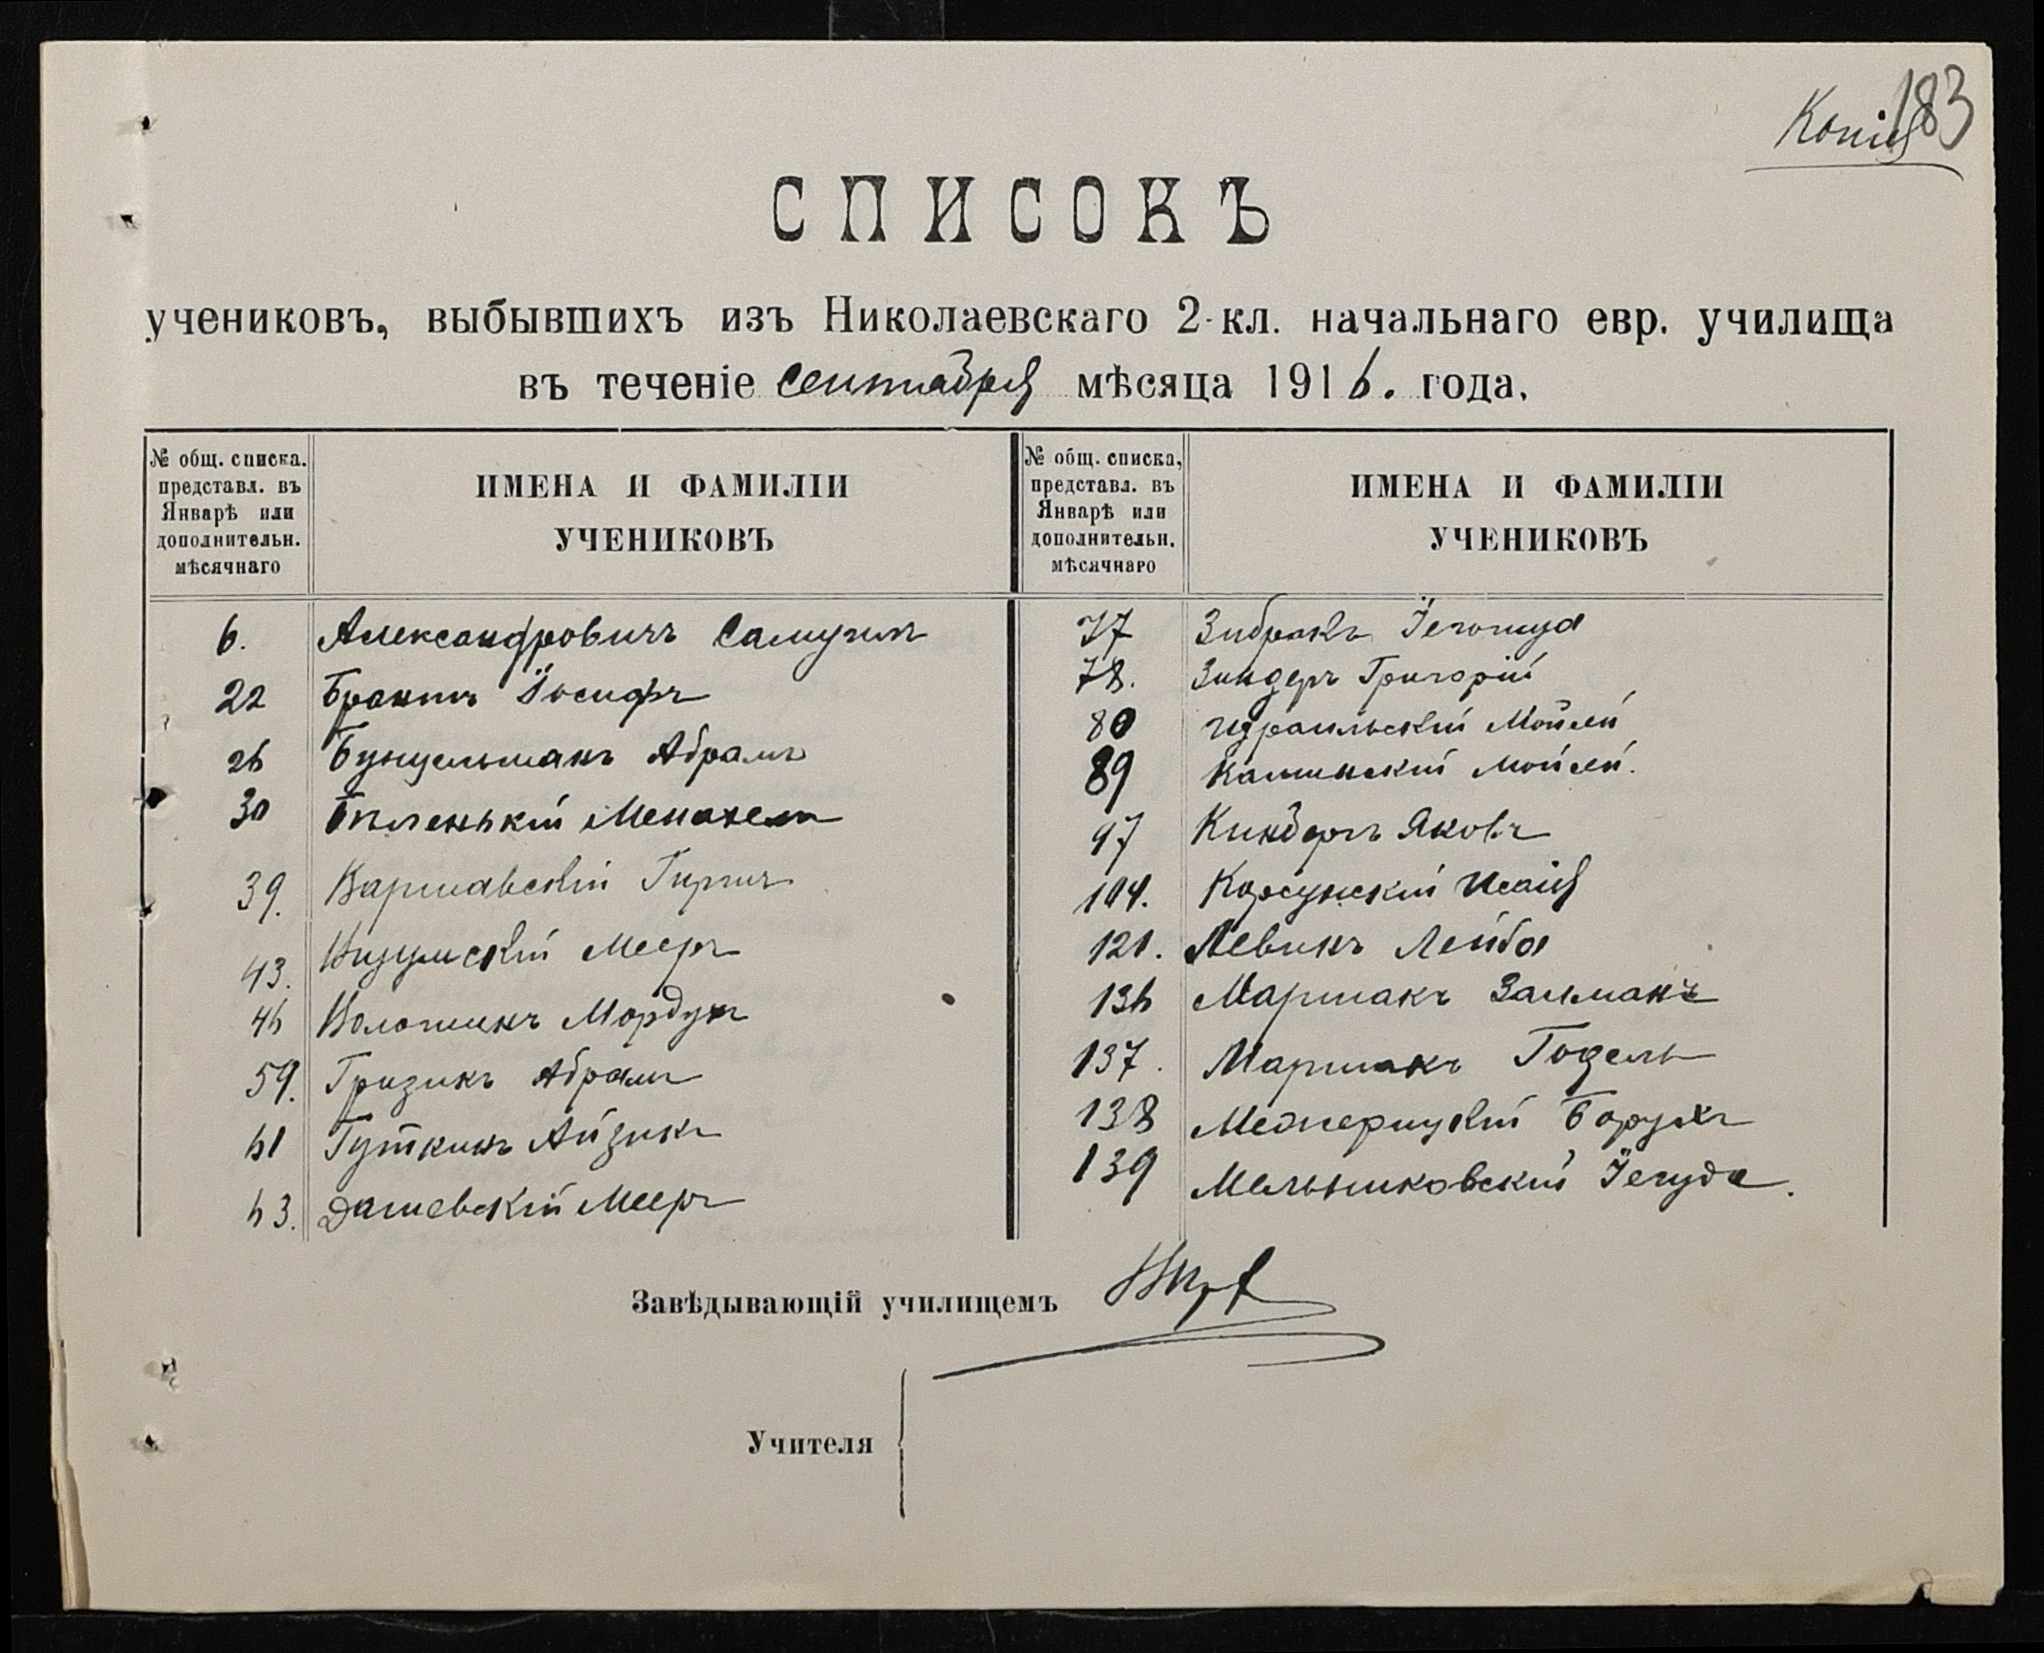 183
Копія
СПИСОКЪ
учениковъ, выбывшихъ изъ Николаевскаго 2-кл. начальнаго евр. училища
въ теченіе сентября мѣсяца 1916. года.
№ общ. списка. представл. въ Январѣ или дополнительн. мѣсячнаго
ИМЕНА И ФАМИЛІИ УЧЕНИКОВЪ
№ общ. списка, представл. въ Январѣ или дополнительн. мѣсячнаго
ИМЕНА И ФАМИЛІИ УЧЕНИКОВЪ
6. Александровичъ Самуилъ
22 Брантъ Іосифъ
26 Бунцельманъ Абрамъ
30 Бѣленькій Менахем
39. Варшавскій Гиршъ
43. Мееръ
46 Волошинъ Мордух
59. Гризикъ Абрамъ
61 Гуткинъ Айзикъ
63. Дашевскій Мееръ
77 Зибракъ Іегошуа
78. Зиндеръ Григорій
80 Израильскій Мойсей
89 Каминскій Мойсей.
97 Киндеръ Яковъ
104. Корсунскій Исаія
121. Левинъ Лейба
136 Маршакъ Залманъ
137. Маршакъ Годель
138 Межерицкій Борухъ
139 Мельниковскій Іегуда.
Завѣдывающій училищемъ
Учителя